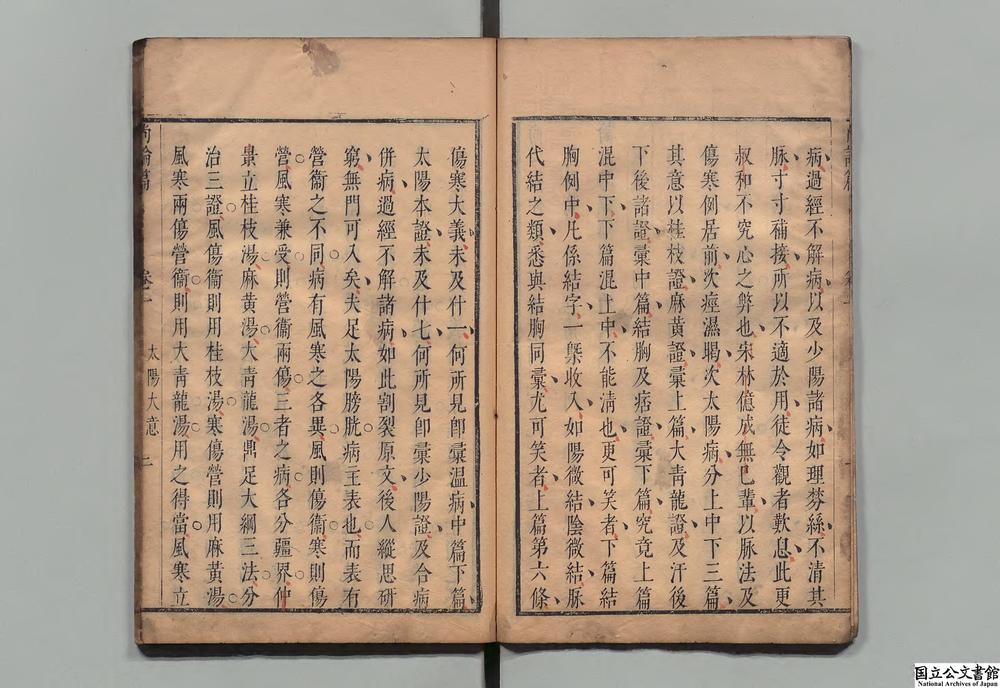 病過經不解病以及少陽諸病如理棼絲不清其
脉寸寸補接所以不適於用徒令觀者歎息此更
叔和不究心之弊也宋林億成無已輩以脉法及
傷寒例居前次痙濕暍次太陽病分上中下三篇
其意以桂枝證麻黄證彙上篇大青龍證及汗後
下後諸證彙中篇結胸及痞證彙下篇究竟上篇
混中下下篇混上中不能清也更可笑者下篇結
胸例中凡係結字一槩收入如陽微結陰微結脉
代結之類悉與結胸同彙尤可笑者上篇第六條
傷寒大義未及什一何所見卽彙溫病中篇下篇
太陽本證未及什七何所見卽彙少陽證及合病
併病過經不解諸病如此割裂原文後人縱思研
窮無門可入矣夫足太陽膀胱病主表也而表有
營衞之不同病有風寒之各異風則傷衞寒則傷
營風寒兼受則營衞兩傷三者之病各分疆界仲
景立桂枝湯麻黄湯大青龍湯鼎足大綱三法分
治三證風傷衞則用桂枝湯寒傷營則用麻黄湯
風寒兩傷營衞則用大青龍湯用之得當風寒立
尚論篇
卷一
太陽大意
二
国立公文書館
National Archives of Japan